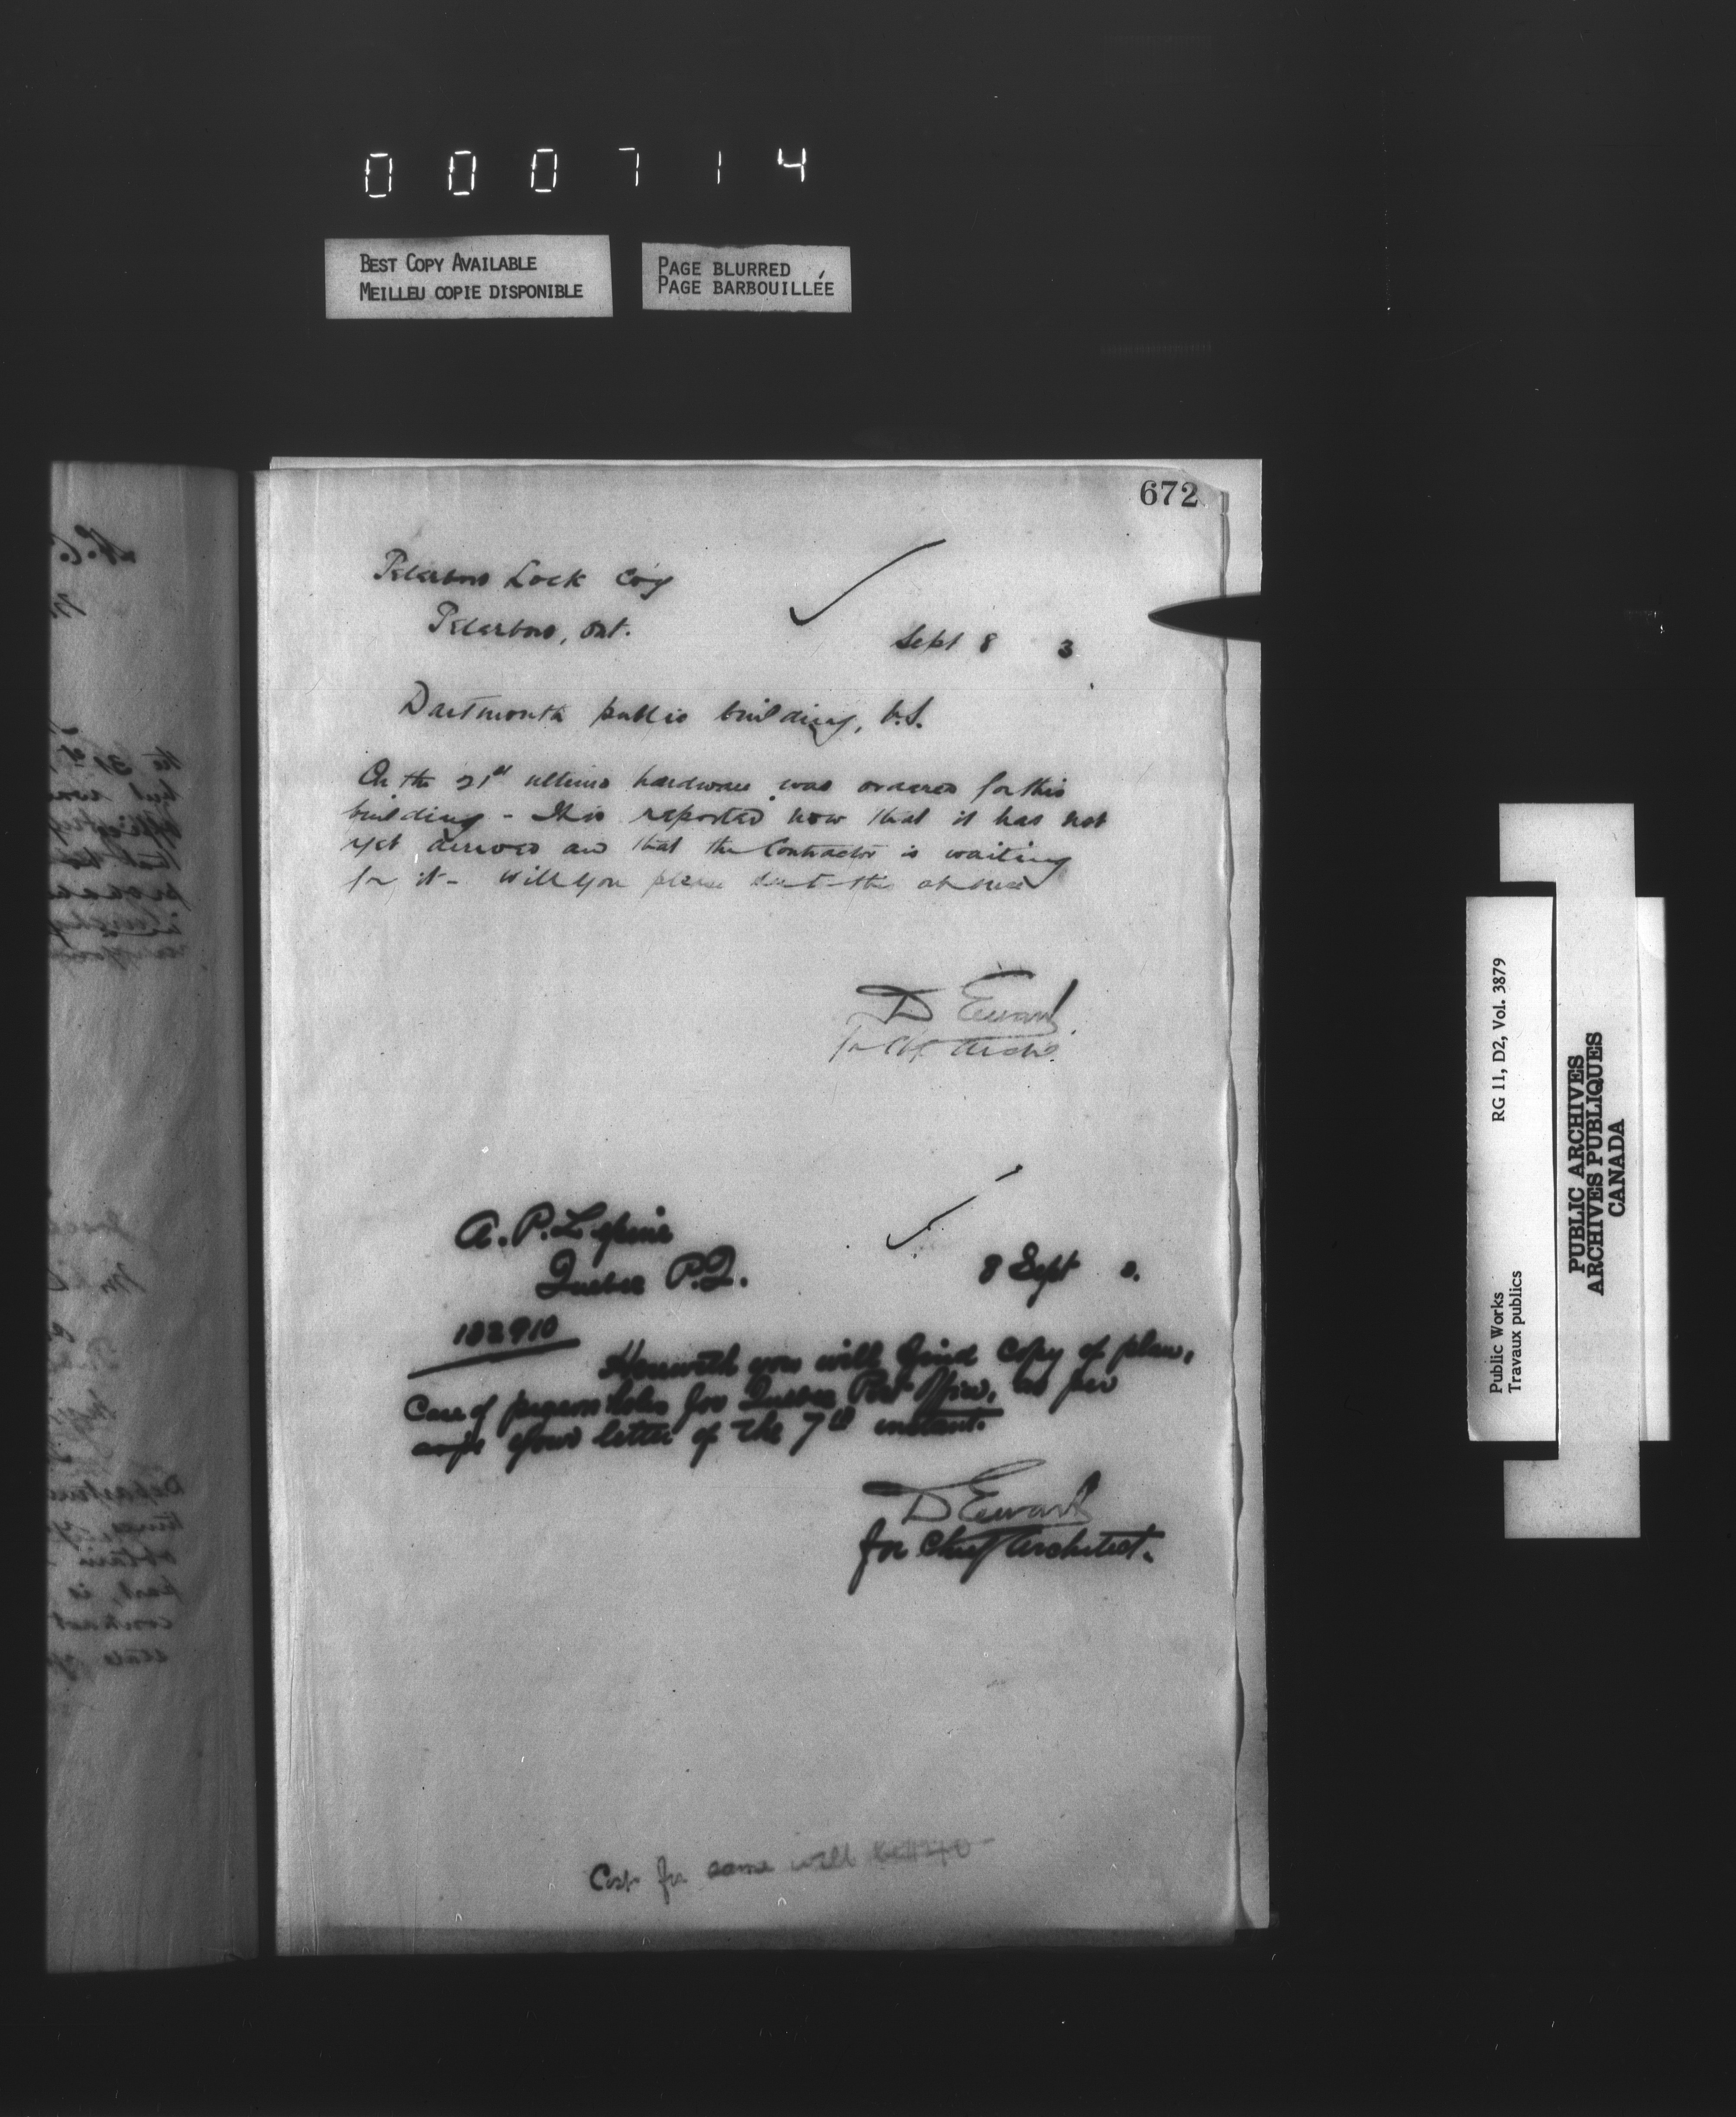 000714
BEST COPY AVAILABLE
MEILLEU COPIE DISPONIBLE
PAGE BLURRED
PAGE BARBOUILLÉE
672
Peterboro Lock Coy
Peterboro, Ont.
Sept 8 3
Dartmouth public building, N.S.
On the 21st ultimo hardware was ordered for this
building - It is reported now that it has not
yet arrived and that the Contractor is waiting
for it - Will you please
D Ewart
for Ch Archt.
A. P. Lepine
Quebec P.Q.
8 Sept
182910
Herewith you will find copy of plan,
Case of pigeon holes for Quebec Post Office, as per
your letter of the 7th instant.
D Ewart
for Chief Architect.
Cost for same will
Public Works
Travaux publics
RG 11, D2, Vol. 3879
PUBLIC ARCHIVES
ARCHIVES PUBLIQUES
CANADA